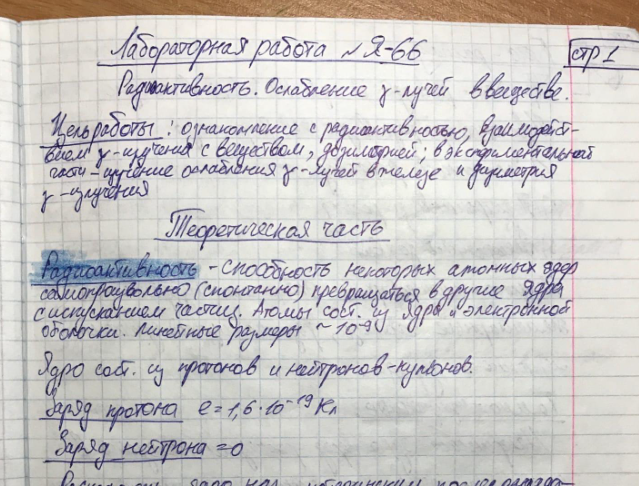 Лабораторная работа № Я-66
стр 1
Радиоактивность. Ослабление γ-лучей в веществе.
Цель работы: ознакомление с радиоактивностью, взаимодейст-
вием γ-излучения с веществом, дозиметрией; в экспериментальной
части - изучение ослабления γ-лучей в железе и
γ-излучения
Теоретическая часть
Радиоактивность - способность некоторых атомных ядер
самопроизвольно (спонтанно) превращаться в другие ядра
с испусканием частиц. Атомы сост. из ядра и электронной
оболочки. Линейные размеры ~ 10⁻⁹
Ядро сост. из протонов и нейтронов-нуклонов.
Заряд протона e = 1,6·10⁻¹⁹ Кл
Заряд нейтрона = 0